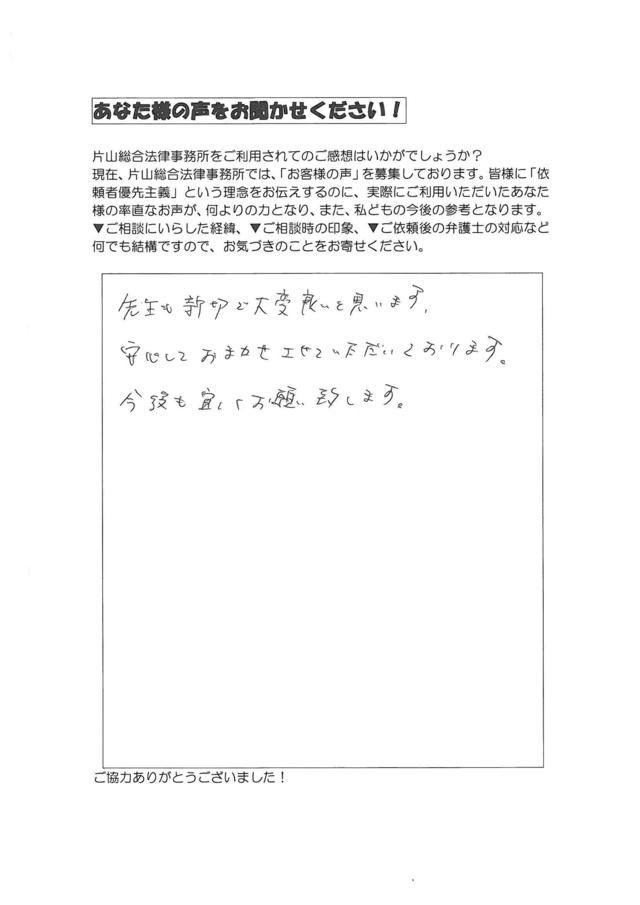 あなた様の声をお聞かせください！
片山総合法律事務所をご利用されてのご感想はいかがでしょうか？
現在、片山総合法律事務所では、「お客様の声」を募集しております。皆様に「依
頼者優先主義」という理念をお伝えするのに、実際にご利用いただいたあなた
様の率直なお声が、何よりの力となり、また、私どもの今後の参考となります。
▼ご相談にいらした経緯、▼ご相談時の印象、▼ご依頼後の弁護士の対応など
何でも結構ですので、お気づきのことをお寄せください。
先生も親切で大変良いと思います。
安心しておまかせさせていただいております。
今後も宜しくお願い致します。
ご協力ありがとうございました！